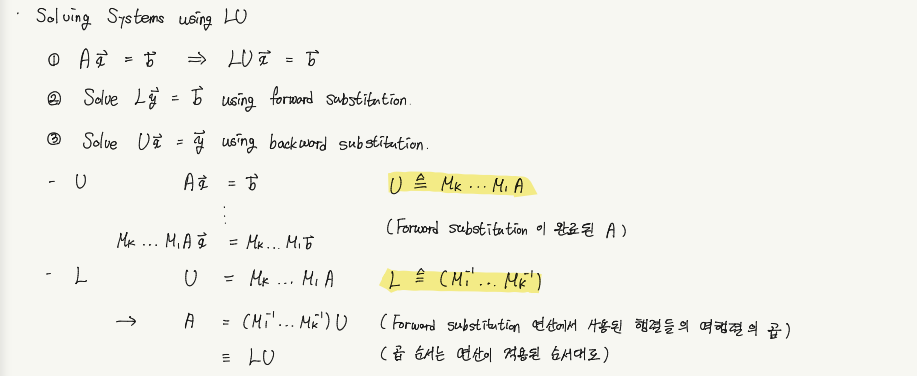 · Solving Systems using LU
① Ax⃗ = b⃗ ⇒ LUx⃗ = b⃗
② Solve Ly⃗ = b⃗ using forward substitution.
③ Solve Ux⃗ = y⃗ using backword substitution.
- U Ax⃗ = b⃗ U ≜ Mₖ ... M₁A
⋮ (Forward substitution 이 완료된 A)
Mₖ ... M₁Ax⃗ = Mₖ ... M₁b⃗
- L U = Mₖ ... M₁A L ≜ (M₁⁻¹ ... Mₖ⁻¹)
→ A = (M₁⁻¹ ... Mₖ⁻¹)U (Forward substitution 연산에서 사용된 행렬들의 역행렬의 곱)
≡ LU (곱 순서는 연산이 적용된 순서대로)